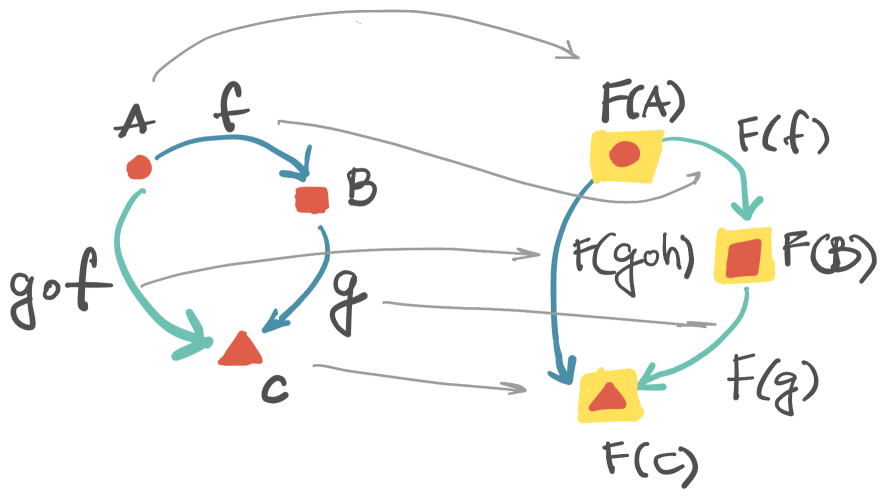 A
f
B
g∘f
g
c
F(A)
F(f)
F(goh)
F(B)
F(g)
F(c)